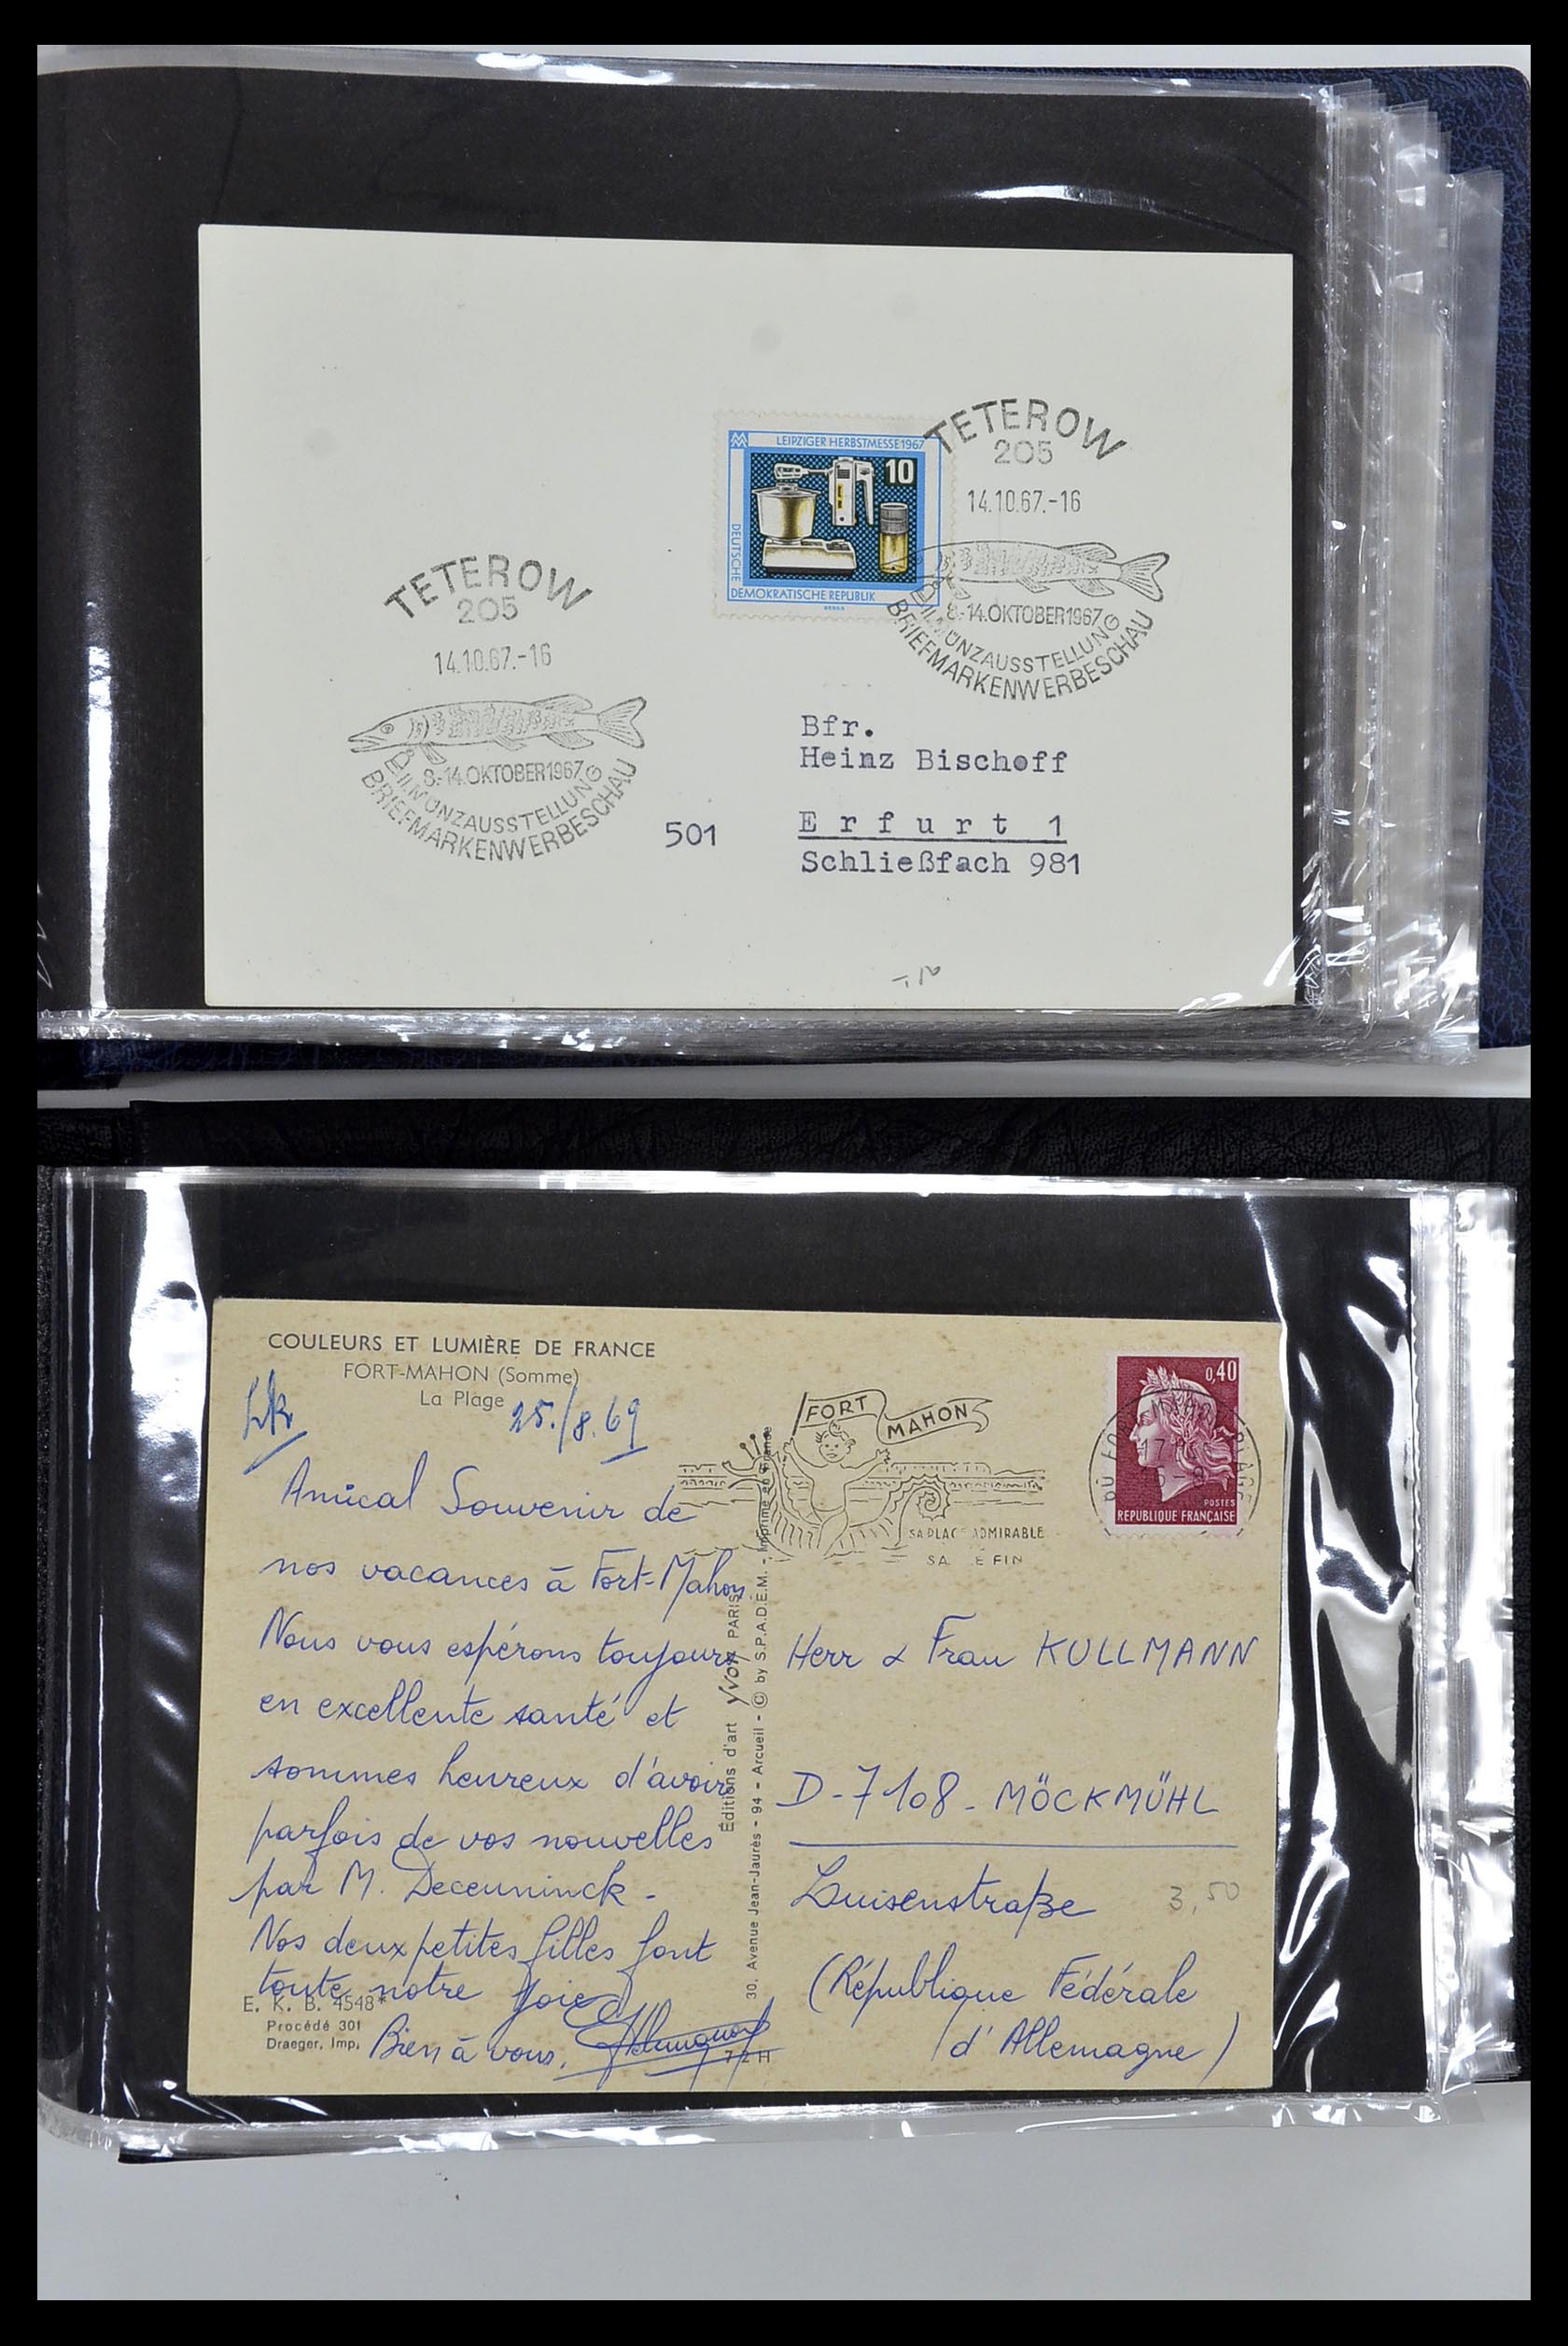 LEIPZIGER HERBSTMESSE 1967
10
DEUTSCHE
DEMOKRATISCHE REPUBLIK
TETEROW
205
14.10.67.-16
8.-14. OKTOBER 1967
II. MÜNZAUSSTELLUNG
BRIEFMARKENWERBESCHAU
TETEROW
205
14.10.67.-16
8.-14. OKTOBER 1967
II. MÜNZAUSSTELLUNG
BRIEFMARKENWERBESCHAU
Bfr.
Heinz Bischoff
501
Erfurt 1
Schließfach 981
COULEURS ET LUMIÈRE DE FRANCE
FORT-MAHON (Somme)
La Plage
25./8.69
Amical Souvenir de
nos vacances à Fort-Mahon
Nous vous espérons toujours
en excellente santé et
sommes heureux d'avoir
parfois de vos nouvelles
par M. Deceuninck -
Nos deux petites filles font
toute notre joie
Bien à vous.
E. K. B. 4548*
Procédé 301
Draeger, Imp.
72 H
Éditions d'art Yvon PARIS
30, Avenue Jean-Jaurès - 94 - Arcueil - © by S.P.A.D.E.M. - Imprimé en France
FORT MAHON
SA PLAGE ADMIRABLE
SA E FIN
0,40
POSTES
REPUBLIQUE FRANÇAISE
Herr & Frau KULLMANN
D-7108 - MÖCKMÜHL
Luisenstraße
3,50
(République Fédérale
d'Allemagne)